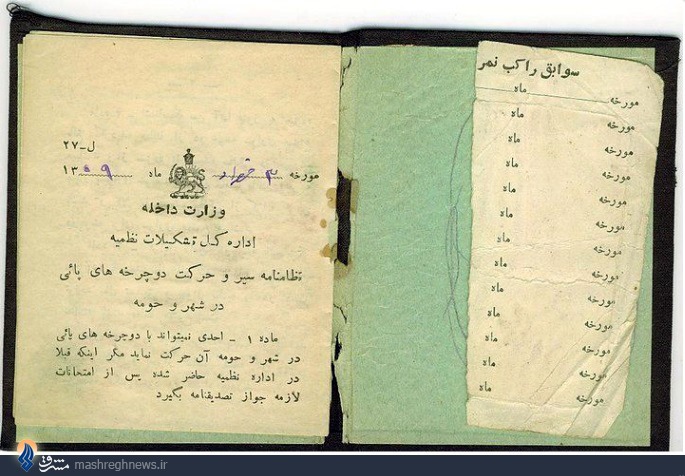 سوابق راکب نمر
مورخه ماه
مورخه ماه
مورخه ماه
مورخه ماه
مورخه ماه
مورخه ماه
مورخه ماه
مورخه ماه
مورخه ماه
مورخه ماه
مورخه ماه
مورخه ماه
مورخه ماه
ل-۲۷
مورخه ۳ خرداد ماه ۱۳۰۹
وزارت داخله
اداره کل تشکیلات نظمیه
نظامنامه سیر و حرکت دوچرخه های پائی
در شهر و حومه
ماده ۱ - احدی نمیتواند با دوچرخه های پائی
در شهر و حومه آن حرکت نماید مگر اینکه قبلا
در اداره نظمیه حاضر شده پس از امتحانات
لازمه جواز تصدیقنامه بگیرد
مشرق mashreghnews.ir